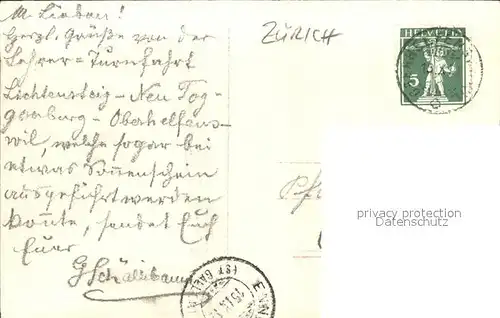 M. Lieben!
Herzl. Grüße von der
Lehrer-Turnfahrt
Lichtensteig - Neu Tog-
genburg - Oberhelfens-
wil, welche sogar bei
etwas Sonnenschein
ausgeführt werden
konnte, sendet Euch
Euer
G Schällibaum
ZÜRICH
HELVETIA
5
privacy protection
watermark
(ST. GALLEN)